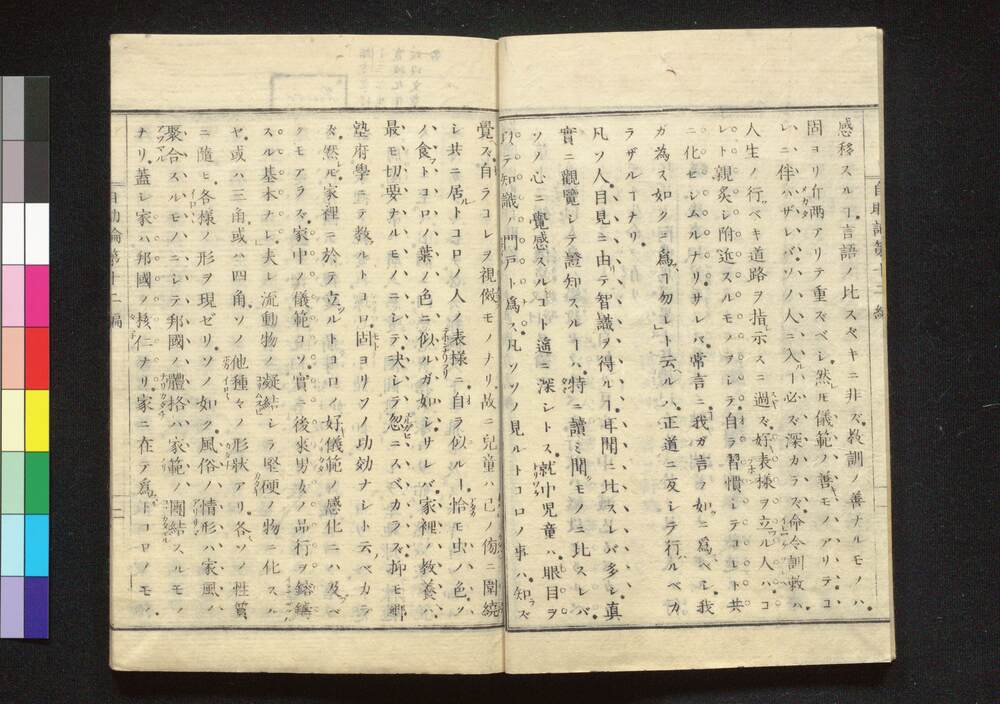 感移スルヿ言語ノ比スベキニ非ズ教訓ノ善ナルモノハ
固ヨリ斤両アリテ重スベシ然レﾄﾞモ儀範ノ善キモノアリテコ
レニ伴ハザレバソノ人ニ入ルヿ必ズ深カラズ命令訓教ハ
人生ノ行ベキ道路ヲ指示スニ過ズ好表様ヲ立ル人ハコ
レト親炙シ附近スルモノヲシテ自ラ習慣シテコレト共
ニ化セシムルナリサレバ常言ニ我ガ言ヲ如ニ為ベシ我
ガ為ス如クニ為ヿ勿レト云ルハ正道ニ反シテ行ルベカ
ラザルヿナリ
凡ソ人目見ニ由テ智識ヲ得ルヿ耳聞ニ比スレバ多シ真
實ニ觀覽シテ證知スルヿハ特ニ讀ミ聞クモノニ比スレバ
ソノ心ニ覺感スルコト遙ニ深シトス就中児童ハ眼目ヲ
以テ知識ノ門戸ト為ス凡ソソノ見ルトコロノ事ハ知ズ
覺ズ自ラコレヲ視傚モノナリ故ニ兒童ハ己ノ傍ニ圍繞
シ共ニ居ルトコロノ人ノ表様ニ自ラ似ルヿ恰モ虫ノ色ソ
ノ食フトコロノ葉ノ色ニ似ルガ如シサレバ家裡ノ教養ハ
最モ切要ナルモノニシテ決シテ忽ニスベカラズ抑モ郷
塾府學ニテ教ルトコロ固ヨリソノ功効ナシト云ベカラ
ズ然レﾄﾞモ家裡ニ於テ立ルトコロノ好儀範ノ感化ニハ及ブベ
クモアラズ家中ノ儀範コソ實ニ後來男女ノ品行ヲ鎔鑄
スル基本ナレ夫レ流動物ノ凝結シテ堅硬ノ物ニ化スル
ヤ或ハ三角或ハ四角ソノ他種々ノ形狀アリ各々ソノ性質
ニ隨ヒ各様ノ形ヲ現ゼリソノ如ク風俗ノ情形ハ家風ノ
聚合スルモノニシテ邦國ノ體格ハ家範ノ團結スルモノ
ナリ蓋シ家ハ邦國ノ核仁ナリ家ニ在テ為トコロノモノ
自助論第十二編